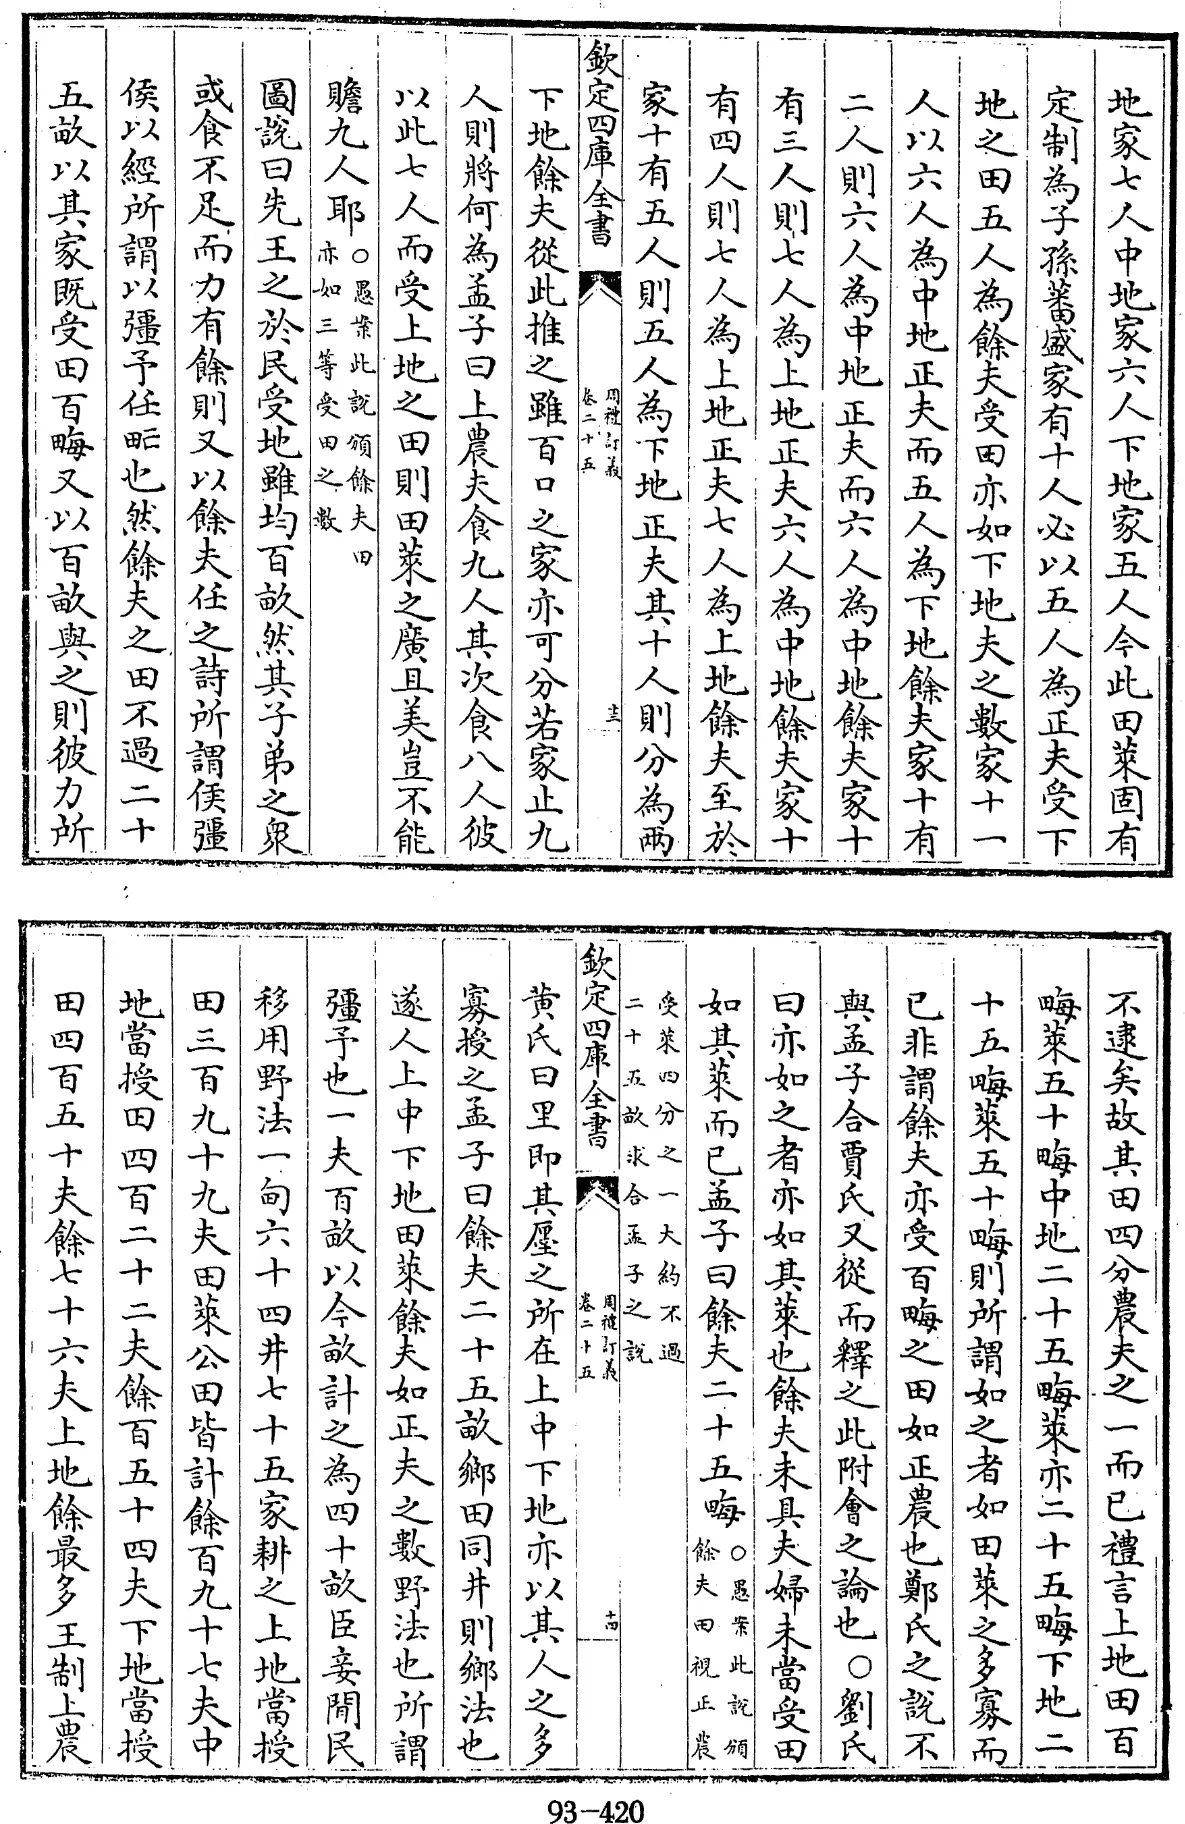 地家七人中地家六人下地家五人今此田萊固有
定制為子孫蕃盛家有十人必以五人為正夫受下
地之田五人為餘夫受田亦如下地夫之數家十一
人以六人為中地正夫而五人為下地餘夫家十有
二人則六人為中地正夫而六人為中地餘夫家十
有三人則七人為上地正夫六人為中地餘夫家十
有四人則七人為上地正夫七人為上地餘夫至於
家十有五人則五人為下地正夫其十人則分為兩
欽定四庫全書
周禮訂義
卷二十五
十三
下地餘夫從此推之雖百口之家亦可分若家止九
人則將何為孟子曰上農夫食九人其次食八人彼
以此七人而受上地之田則田萊之廣且美豈不能
贍九人耶
○愚案此說頒餘夫田
亦如三等受田之數
圖說曰先王之於民受地雖均百畝然其子弟之衆
或食不足而力有餘則又以餘夫任之詩所謂侯彊
侯以經所謂以彊予任甿也然餘夫之田不過二十
五畝以其家既受田百畮又以百畝與之則彼力所
不逮矣故其田四分農夫之一而已禮言上地田百
畮萊五十畮中地二十五畮萊亦二十五畮下地二
十五畮萊五十畮則所謂如之者如田萊之多寡而
已非謂餘夫亦受百畮之田如正農也鄭氏之說不
與孟子合賈氏又從而釋之此附會之論也○劉氏
曰亦如之者亦如其萊也餘夫未具夫婦未當受田
如其萊而已孟子曰餘夫二十五畮
○愚案此說頒
餘夫田視正農
受萊四分之一大約不過
二十五畝求合孟子之說
欽定四庫全書
周禮訂義
卷二十五
十四
黄氏曰里即其廛之所在上中下地亦以其人之多
寡授之孟子曰餘夫二十五畝鄉田同井則鄉法也
遂人上中下地田萊餘夫如正夫之數野法也所謂
彊予也一夫百畝以今畝計之為四十畝臣妾閒民
移用野法一甸六十四井七十五家耕之上地當授
田三百九十九夫田萊公田皆計餘百九十七夫中
地當授田四百二十二夫餘百五十四夫下地當授
田四百五十夫餘七十六夫上地餘最多王制上農
93-420